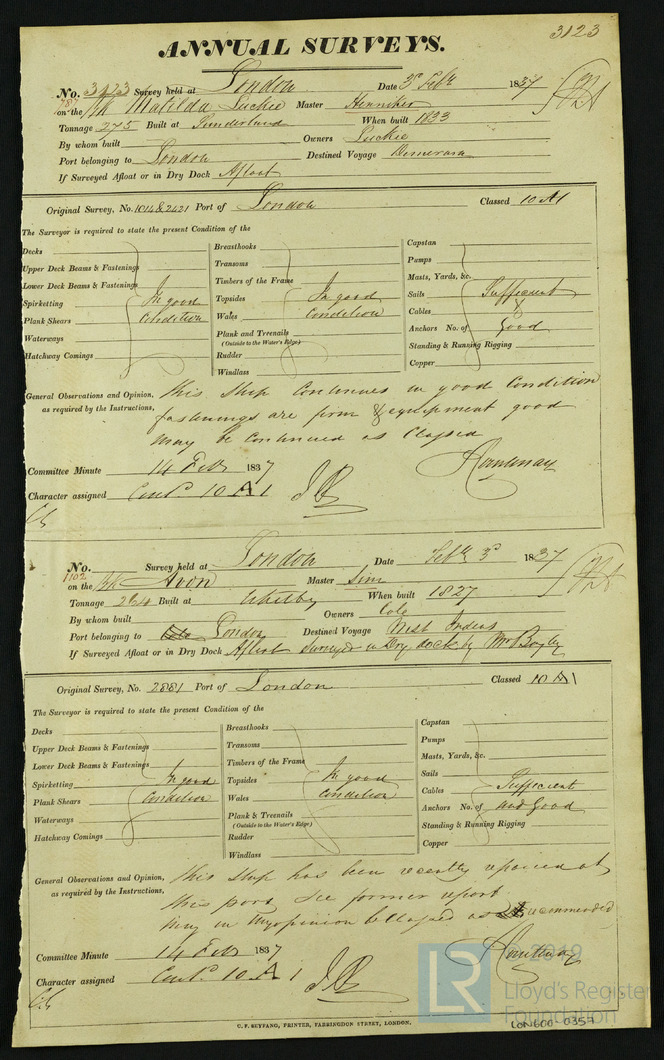 3123
ANNUAL SURVEYS.
No. 3123 Survey held at London Date 3d Feby 1837
787
on the Bk Matilda Luckie Master Henniker
Tonnage 275 Built at Sunderland When built 1833
By whom built Owners Luckie
Port belonging to London Destined Voyage Demerara
If Surveyed Afloat or in Dry Dock Afloat
Original Survey, No. 1014 & 2421 Port of London Classed 10 A1
The Surveyor is required to state the present Condition of the
Decks
Upper Deck Beams & Fastenings
Lower Deck Beams & Fastenings
Spirketting In good
Plank Shears Condition
Waterways
Hatchway Comings
Breasthooks
Transoms
Timbers of the Frame
Topsides In good
Wales Condition
Plank and Treenails
(Outside to the Water's Edge)
Rudder
Windlass
Capstan
Pumps
Masts, Yards, &c.
Sails Sufficient
Cables &
Anchors No. of Good
Standing & Running Rigging
Copper
General Observations and Opinion, This Ship Continues in good Condition
as required by the Instructions, fastenings are firm & equipment good
may be Continued as Classed
Committee Minute 14 Feb 1837
Character assigned Contd. 10 A 1
No. Survey held at London Date Feby 3d 1837
1102
on the Bk Avon Master Sim
Tonnage 264 Built at Whitby When built 1827
By whom built Owners Cole
Port belonging to London Destined Voyage West Indies
If Surveyed Afloat or in Dry Dock Afloat Surveyed in Dry dock by Mr Bayley
Original Survey, No. 2881 Port of London Classed 10 A1
The Surveyor is required to state the present Condition of the
Decks
Upper Deck Beams & Fastenings
Lower Deck Beams & Fastenings
Spirketting In good
Plank Shears Condition
Waterways
Hatchway Comings
Breasthooks
Transoms
Timbers of the Frame
Topsides In good
Wales Condition
Plank & Treenails
(Outside to the Water's Edge)
Rudder
Windlass
Capstan
Pumps
Masts, Yards, &c.
Sails
Cables Sufficient
Anchors No. of and Good
Standing & Running Rigging
Copper
General Observations and Opinion, This Ship has been recently repaired at
as required by the Instructions, this port see former report
may in my opinion be Classed as recommended
Committee Minute 14 Feb 1837
Character assigned Contd. 10 A 1
C. F. SEYFANG, PRINTER, FARRINGDON STREET, LONDON.
LR © 2019
Lloyd's Register
Foundation
LON600-0357